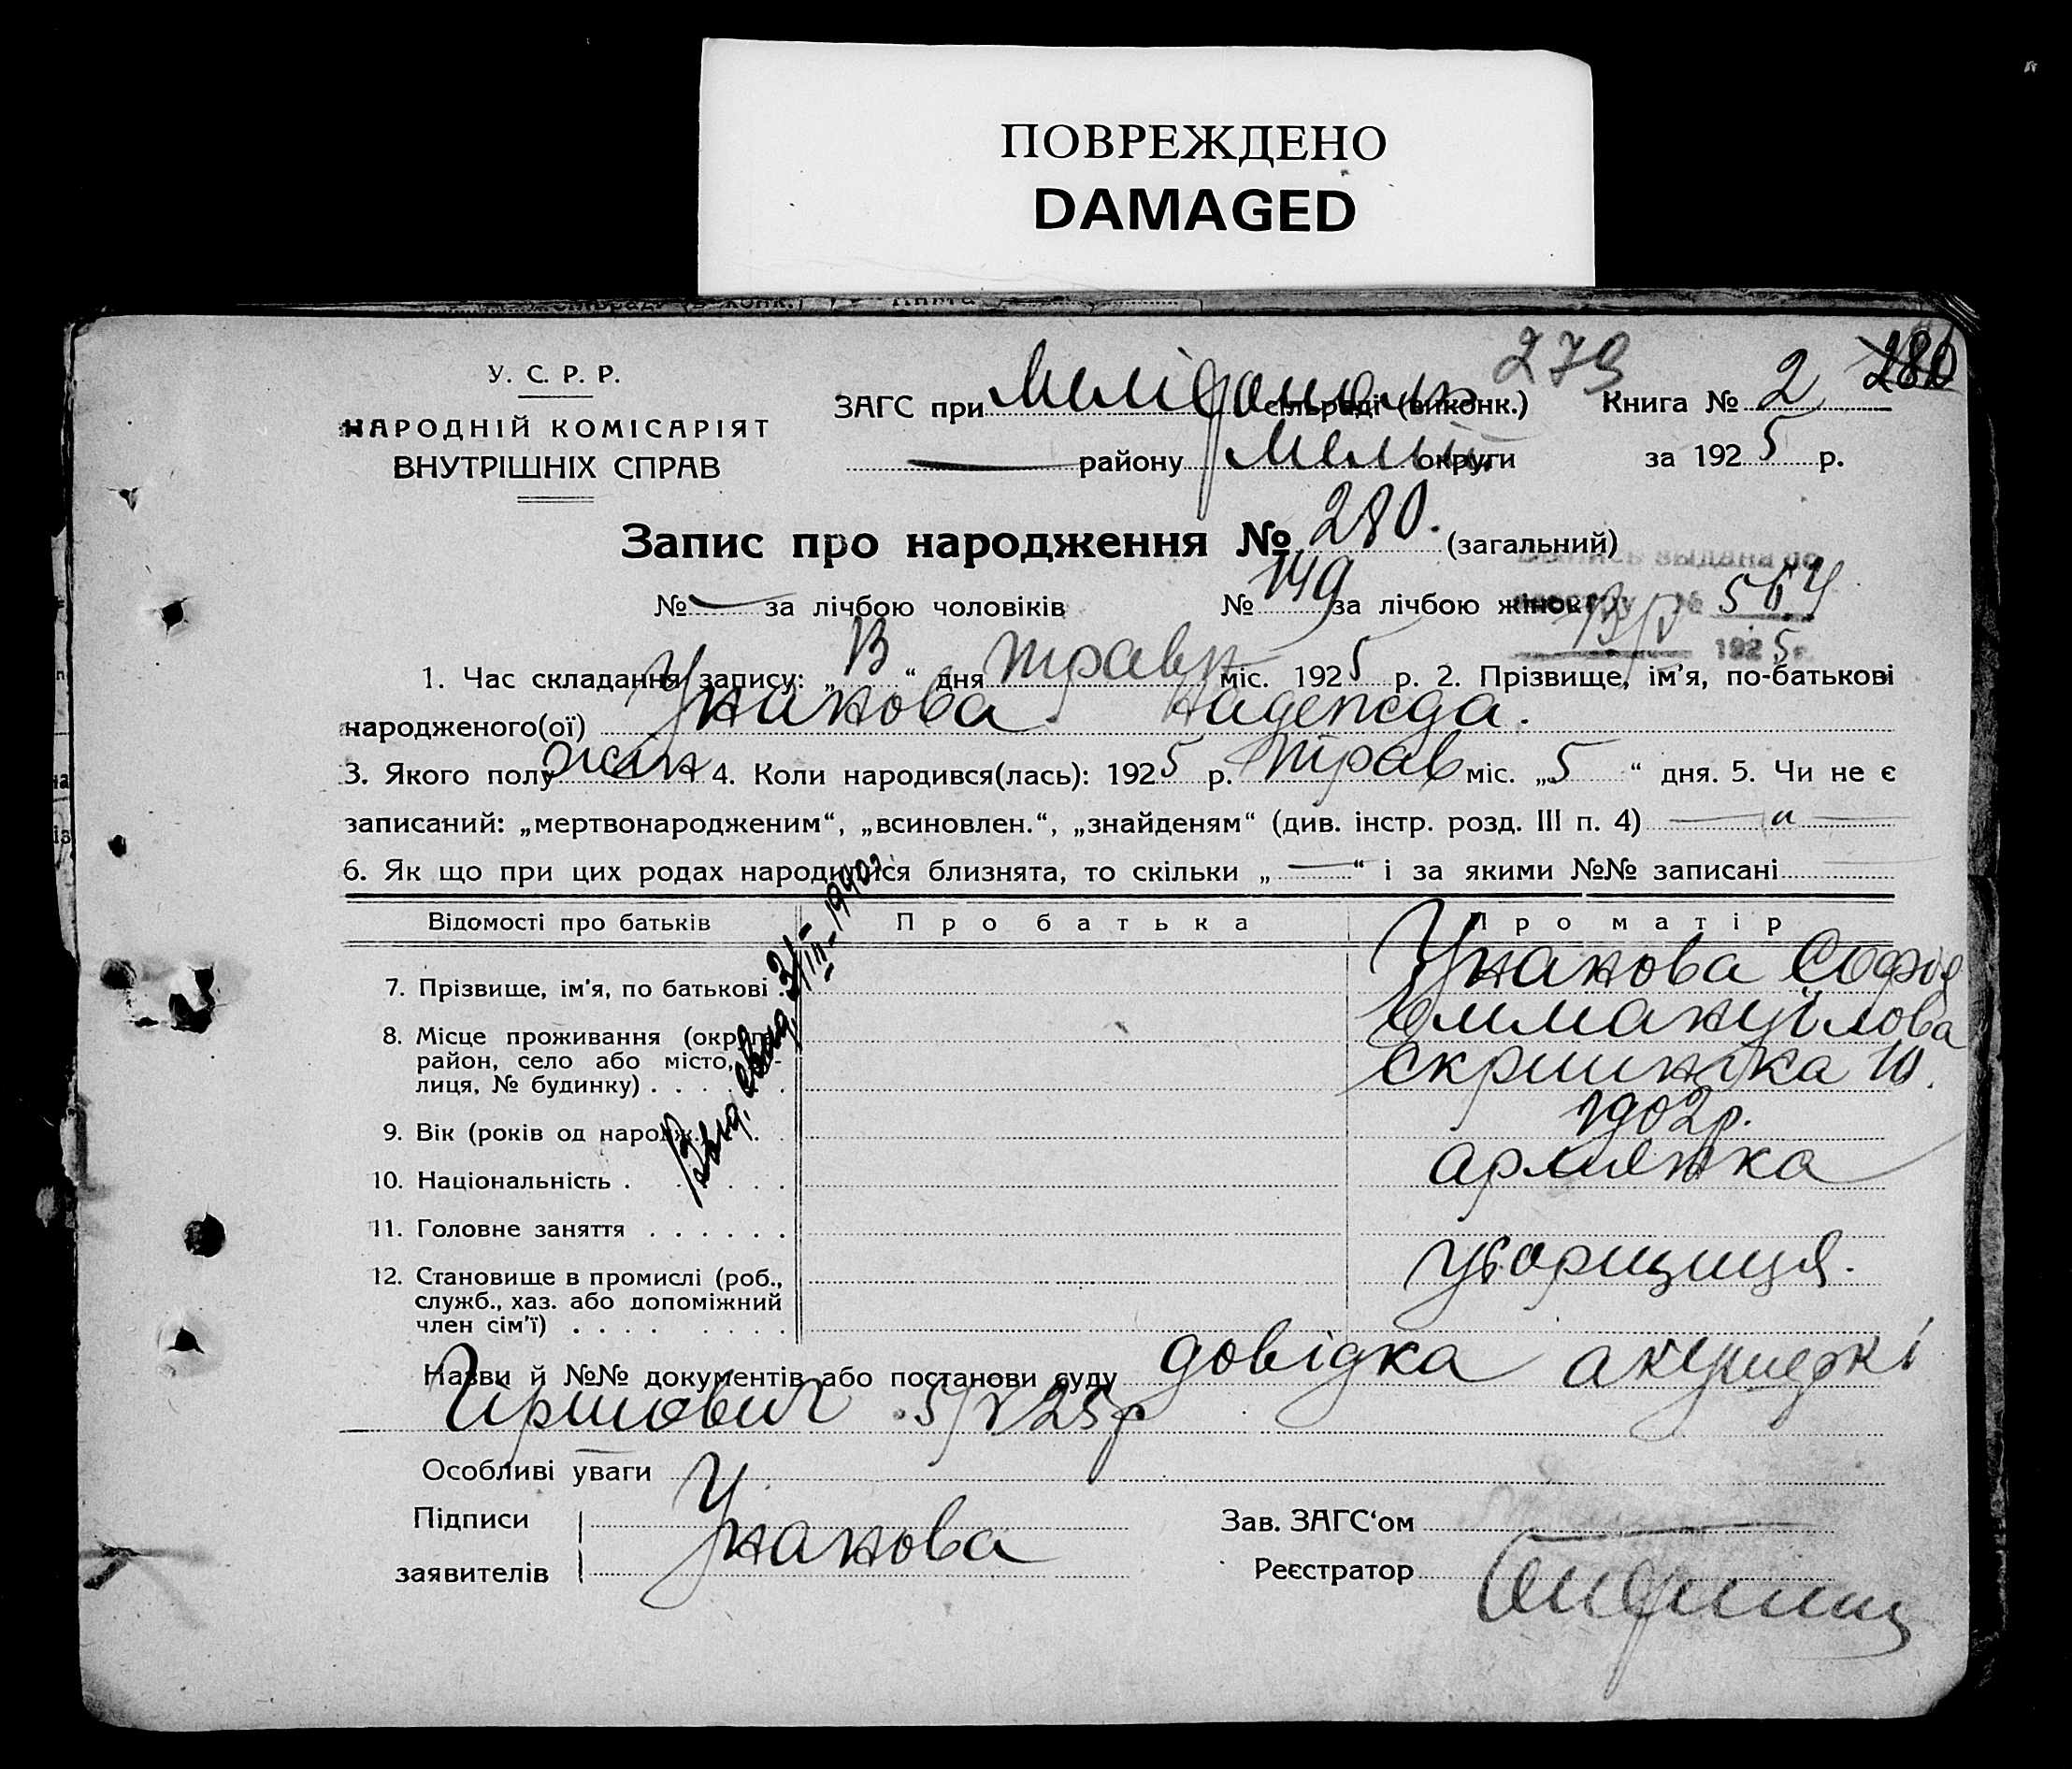 ПОВРЕЖДЕНО
DAMAGED
279
280
У. С. Р. Р.
НАРОДНІЙ КОМІСАРІЯТ
ВНУТРІШНІХ СПРАВ
ЗАГС при Мелідополь сільраді (виконк.) Книга № 2
— району Мелит округи за 1925 р.
Запис про народження № 280. (загальний)
№ — за лічбою чоловіків № 149 за лічбою жінок
выдана по
№ 564
13/V 1925 г.
1. Час складання запису: „13“ дня травн міс. 1925 р. 2. Прізвище, ім’я, по-батькові
народженого(ої) Унанова Надежда.
3. Якого полу жін 4. Коли народився(лась): 1925 р. трав міс. „5“ дня. 5. Чи не є
записаний: „мертвонародженим“, „всиновлен.“, „знайденям“ (див. інстр. розд. III п. 4) — „ —
6. Як що при цих родах народилися близнята, то скільки „—“ і за якими №№ записані
Відомості про батьків Про батька Про матір
7. Прізвище, ім’я, по батькові Унанова Софія
Еммануїлова
8. Місце проживання (округа,
район, село або місто, ву-
лиця, № будинку) 10.
9. Вік (років од народж.) 1902 р.
10. Національність армянка
11. Головне заняття
12. Становище в промислі (роб.,
служб., хаз. або допоміжний
член сім’ї)
уборщиця.
3/III-1940 г
Назви й №№ документів або постанови суду довідка акушеркі
Гіршович 5/V 25 р
Особливі уваги
Підписи
заявителів
Унанова
Зав. ЗАГС‘ом
Реєстратор